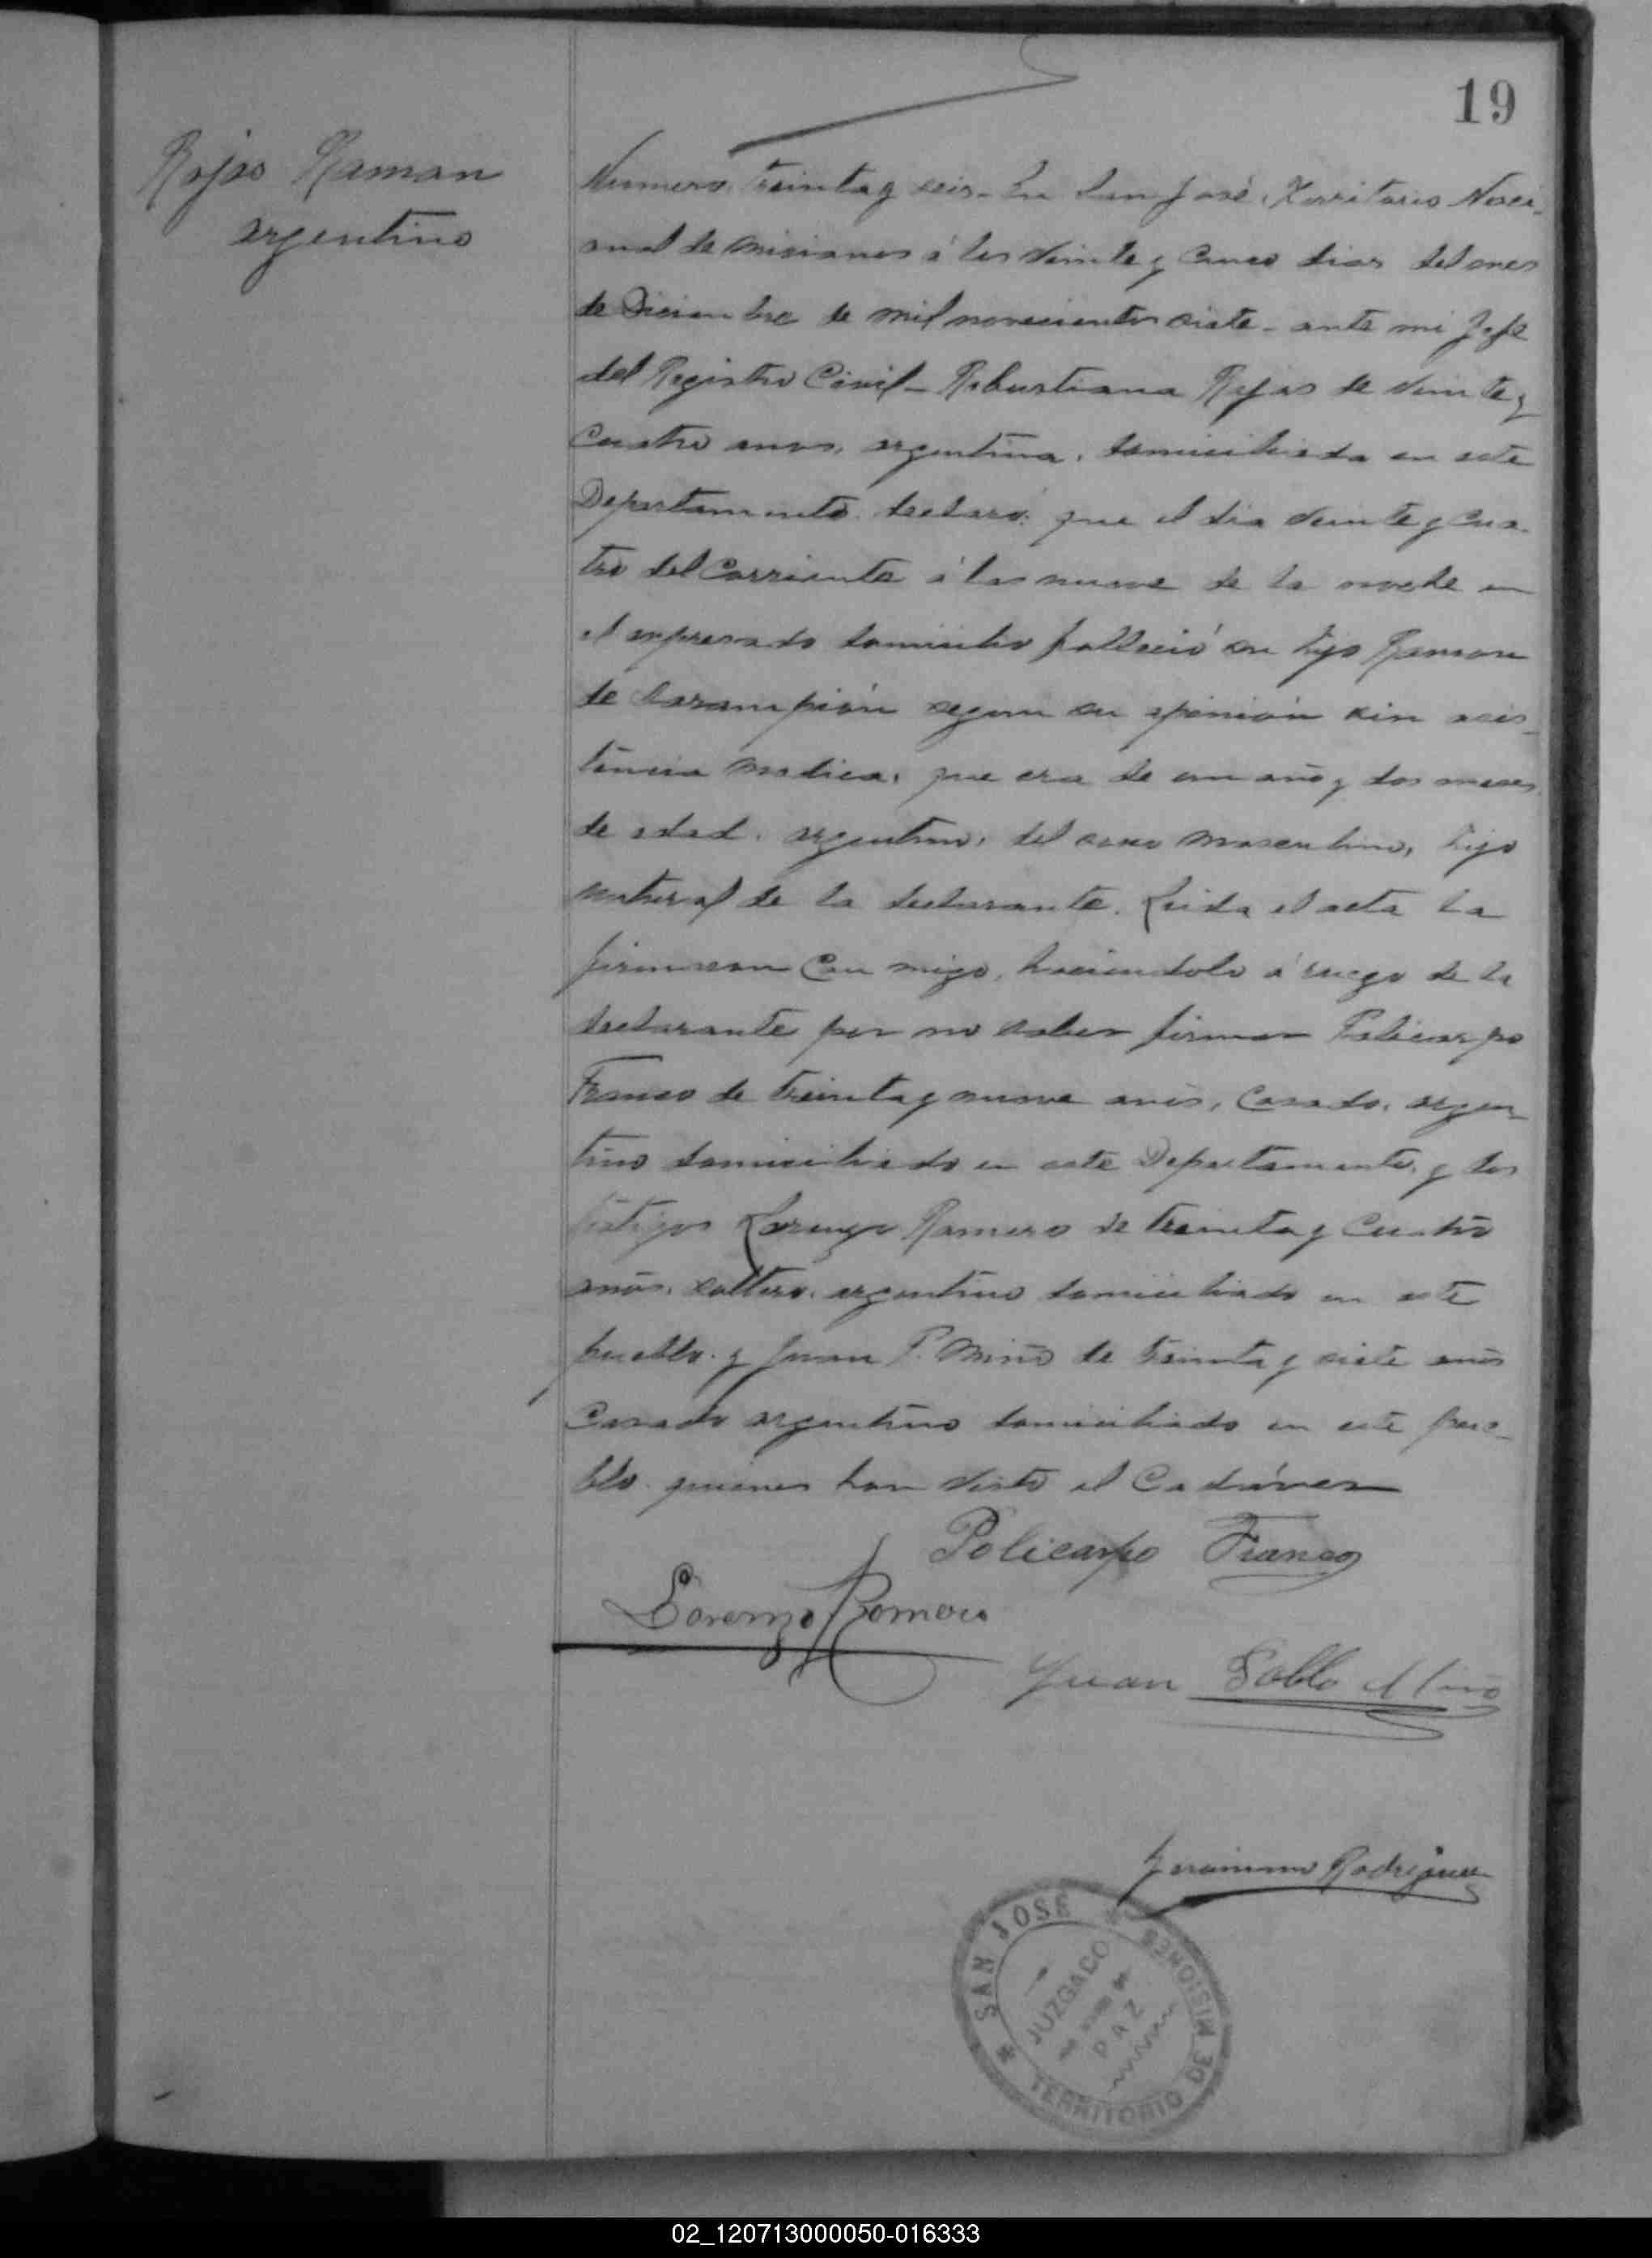 19
Rojas Ramon
argentino
Numero treinta y seis - En San José, Territorio Naci-
onal de Misiones á los veinte y cinco dias del mes
de Diciembre de mil novecientos siete - ante mi Jefe
del Registro Civil - Robustiana Rojas de veinte y
cuatro anos, argentina, domiciliada en este
Departamento declaró: que el dia veinte y cua-
tro del corriente á las nueve de la noche en
el expresado domicilio falleció su hijo Ramon
de Sarampión segun su opinión sin asis-
tencia medica, que era de un año y dos meses
de edad, argentino, del sexo masculino, hijo
natural de la declarante. Leida el acta la
firmaron con migo, haciendolo á ruego de la
declarante por no saber firmar Policarpo
Franco de treinta y nueve años, casado, argen-
tino domiciliado en este Departamento, y los
testigos Lorenzo Romero de treinta y cuatro
años, soltero, argentino domiciliado en este
pueblo y Juan P. Miño de treinta y siete años
casado argentino domiciliado en este pue-
blo quienes han visto el Cadáver
Policarpo Franco
Lorenzo Romero
Juan Pablo Miño
Geronimo Rodriguez
SAN JOSE
JUZGADO
PAZ
TERRITORIO DE MISIONES
02_120713000050-016333